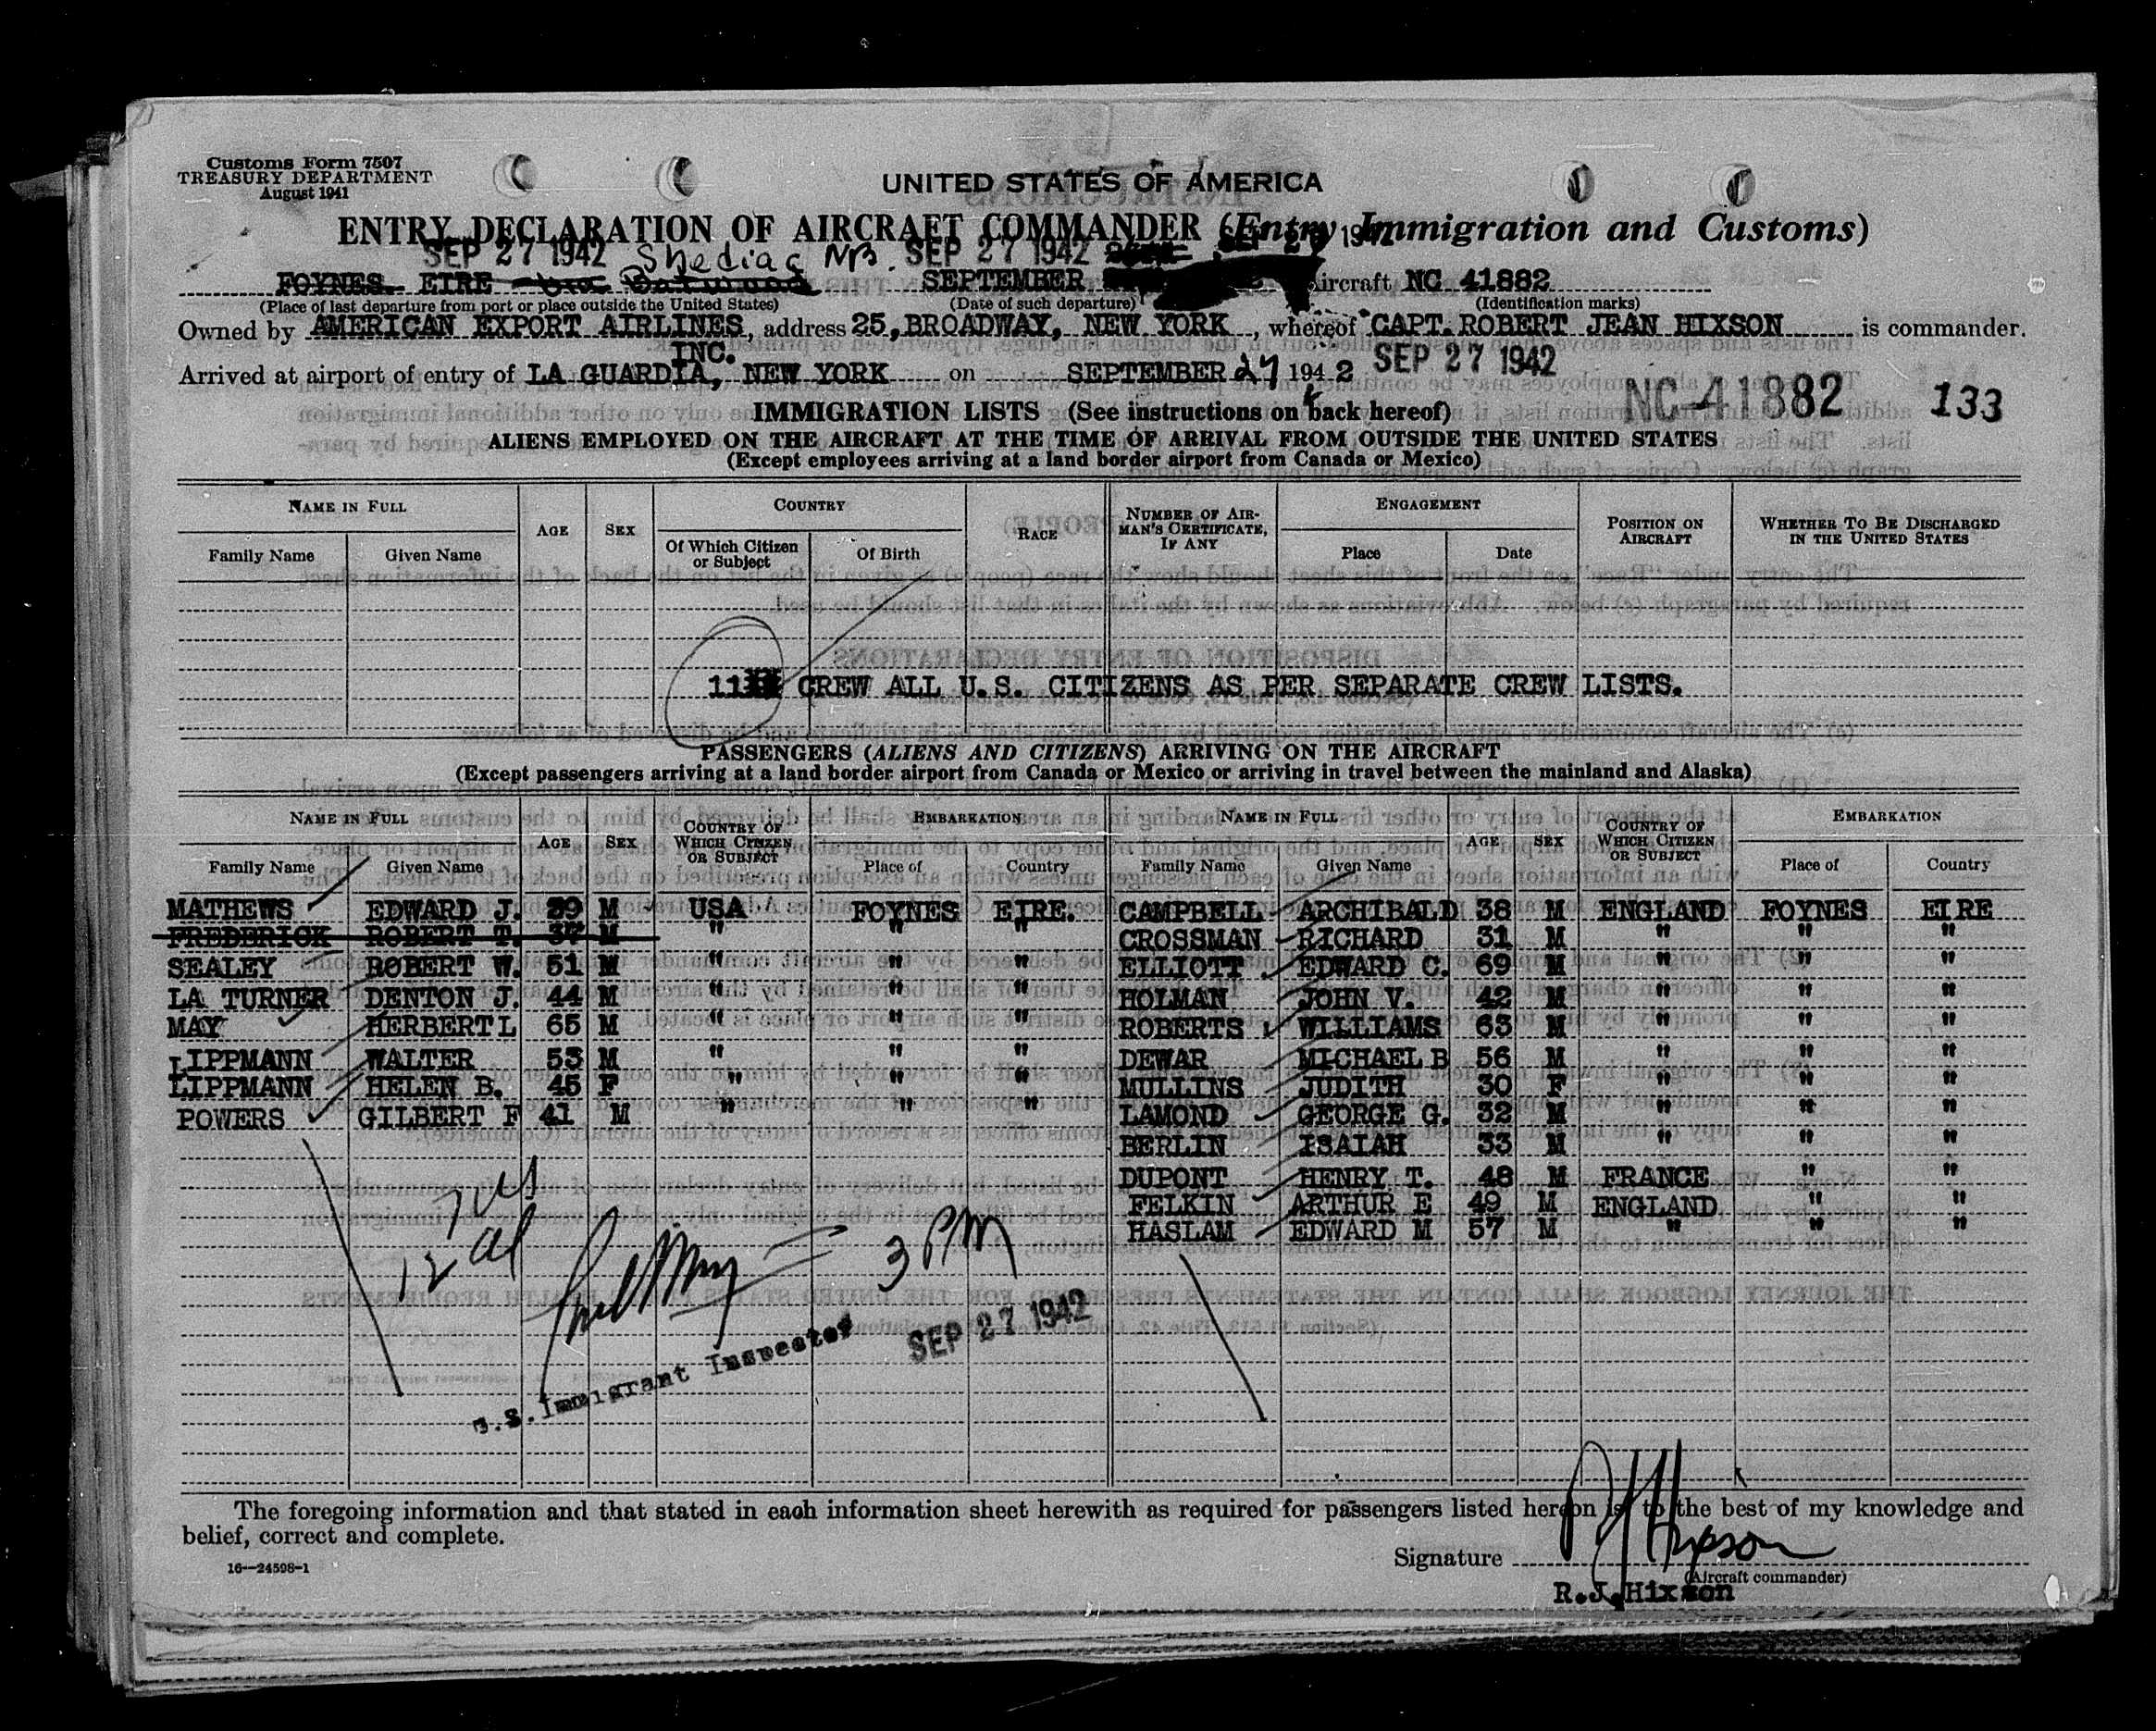 Customs Form 7507
TREASURY DEPARTMENT
August 1941
UNITED STATES OF AMERICA
ENTRY DECLARATION OF AIRCRAFT COMMANDER (Entry Immigration and Customs)
SEP 27 1942 Shediac NB. SEP 27 1942
FOYNES. EIRE via Botwood SEPTEMBER Aircraft NC 41882
(Place of last departure from port or place outside the United States) (Date of such departure) (Identification marks)
Owned by AMERICAN EXPORT AIRLINES, address 25, BROADWAY, NEW YORK, whereof CAPT. ROBERT JEAN HIXSON is commander.
INC.
Arrived at airport of entry of LA GUARDIA, NEW YORK on SEPTEMBER 27 1942 SEP 27 1942
NC-41882 133
IMMIGRATION LISTS (See instructions on back hereof)
ALIENS EMPLOYED ON THE AIRCRAFT AT THE TIME OF ARRIVAL FROM OUTSIDE THE UNITED STATES
(Except employees arriving at a land border airport from Canada or Mexico)
NAME IN FULL AGE SEX COUNTRY RACE NUMBER OF AIRMAN'S CERTIFICATE, IF ANY ENGAGEMENT POSITION ON AIRCRAFT WHETHER TO BE DISCHARGED IN THE UNITED STATES
Family Name Given Name Of Which Citizen or Subject Of Birth Place Date
11 CREW ALL U.S. CITIZENS AS PER SEPARATE CREW LISTS.
PASSENGERS (ALIENS AND CITIZENS) ARRIVING ON THE AIRCRAFT
(Except passengers arriving at a land border airport from Canada or Mexico or arriving in travel between the mainland and Alaska)
NAME IN FULL AGE SEX COUNTRY OF WHICH CITIZEN OR SUBJECT EMBARKATION NAME IN FULL AGE SEX COUNTRY OF WHICH CITIZEN OR SUBJECT EMBARKATION
Family Name Given Name Place of Country Family Name Given Name Place of Country
MATHEWS EDWARD J. 39 M USA FOYNES EIRE. CAMPBELL ARCHIBALD 38 M ENGLAND FOYNES EIRE
FREDERICK ROBERT T. 37 M " " " CROSSMAN RICHARD 31 M " " "
SEALEY ROBERT W. 51 M " " " ELLIOTT EDWARD C. 69 M " " "
LA TURNER DENTON J. 44 M " " " HOLMAN JOHN V. 42 M " " "
MAY HERBERT L 65 M " " " ROBERTS WILLIAMS 63 M " " "
LIPPMANN WALTER 53 M " " " DEWAR MICHAEL B 56 M " " "
LIPPMANN HELEN B. 45 F " " " MULLINS JUDITH 30 F " " "
POWERS GILBERT F 41 M " " " LAMOND GEORGE G. 32 M " " "
BERLIN ISAIAH 33 M " " "
DUPONT HENRY T. 48 M FRANCE " "
FELKIN ARTHUR E 49 M ENGLAND " "
HASLAM EDWARD M 57 M " " "
7 US
12 al
3 PM
U.S. Immigrant Inspector SEP 27 1942
The foregoing information and that stated in each information sheet herewith as required for passengers listed hereon is, to the best of my knowledge and
belief, correct and complete.
16—24598-1
Signature RJHixson
(Aircraft commander)
R.J.Hixson